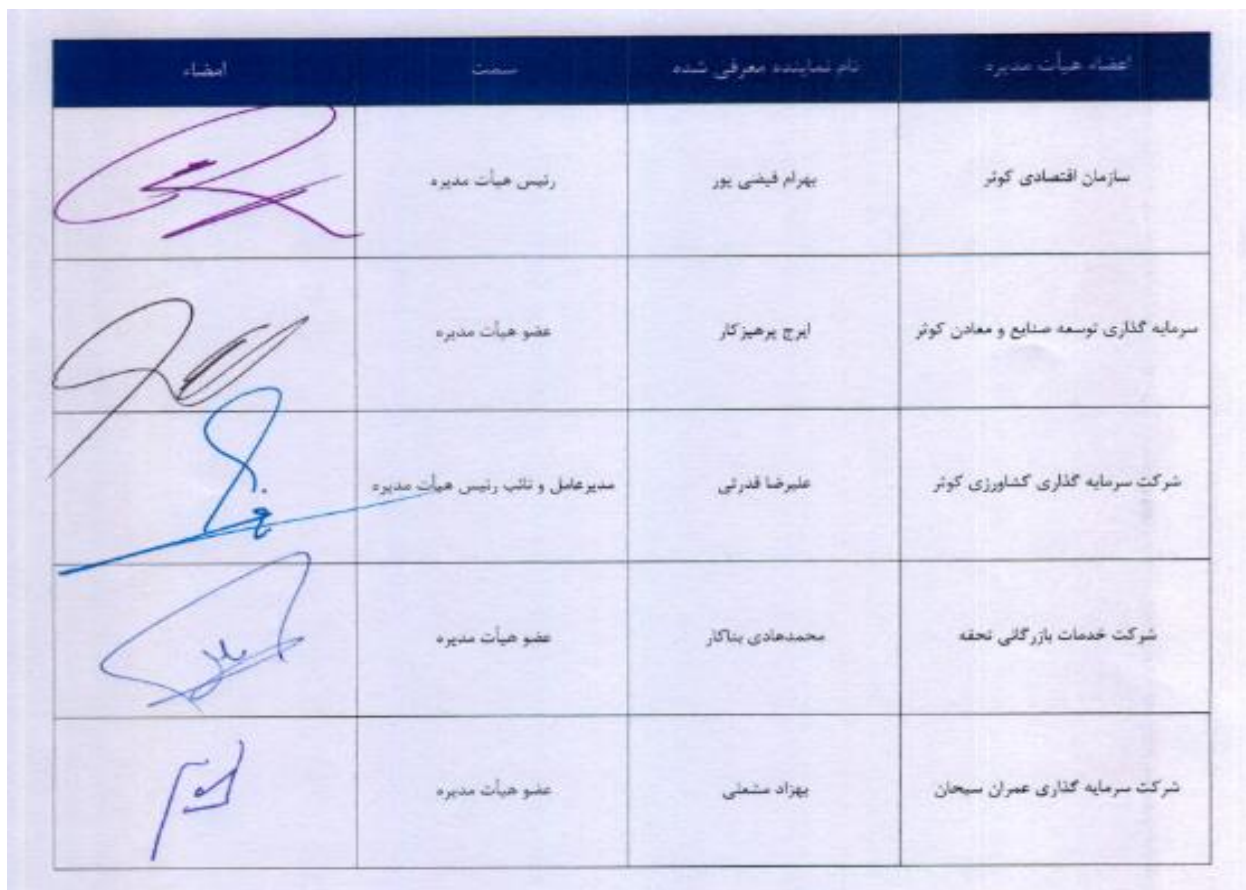 اعضاء هیأت مدیره نام نماینده معرفی شده سمت امضاء
سازمان اقتصادی کوثر بهرام فیضی پور رئیس هیأت مدیره
سرمایه گذاری توسعه صنایع و معادن کوثر ایرج پرهیزکار عضو هیأت مدیره
شرکت سرمایه گذاری کشاورزی کوثر علیرضا قدرتی مدیرعامل و نائب رئیس هیأت مدیره
شرکت خدمات بازرگانی تحفه محمدهادی بناکار عضو هیأت مدیره
شرکت سرمایه گذاری عمران سبحان بهزاد عضو هیأت مدیره